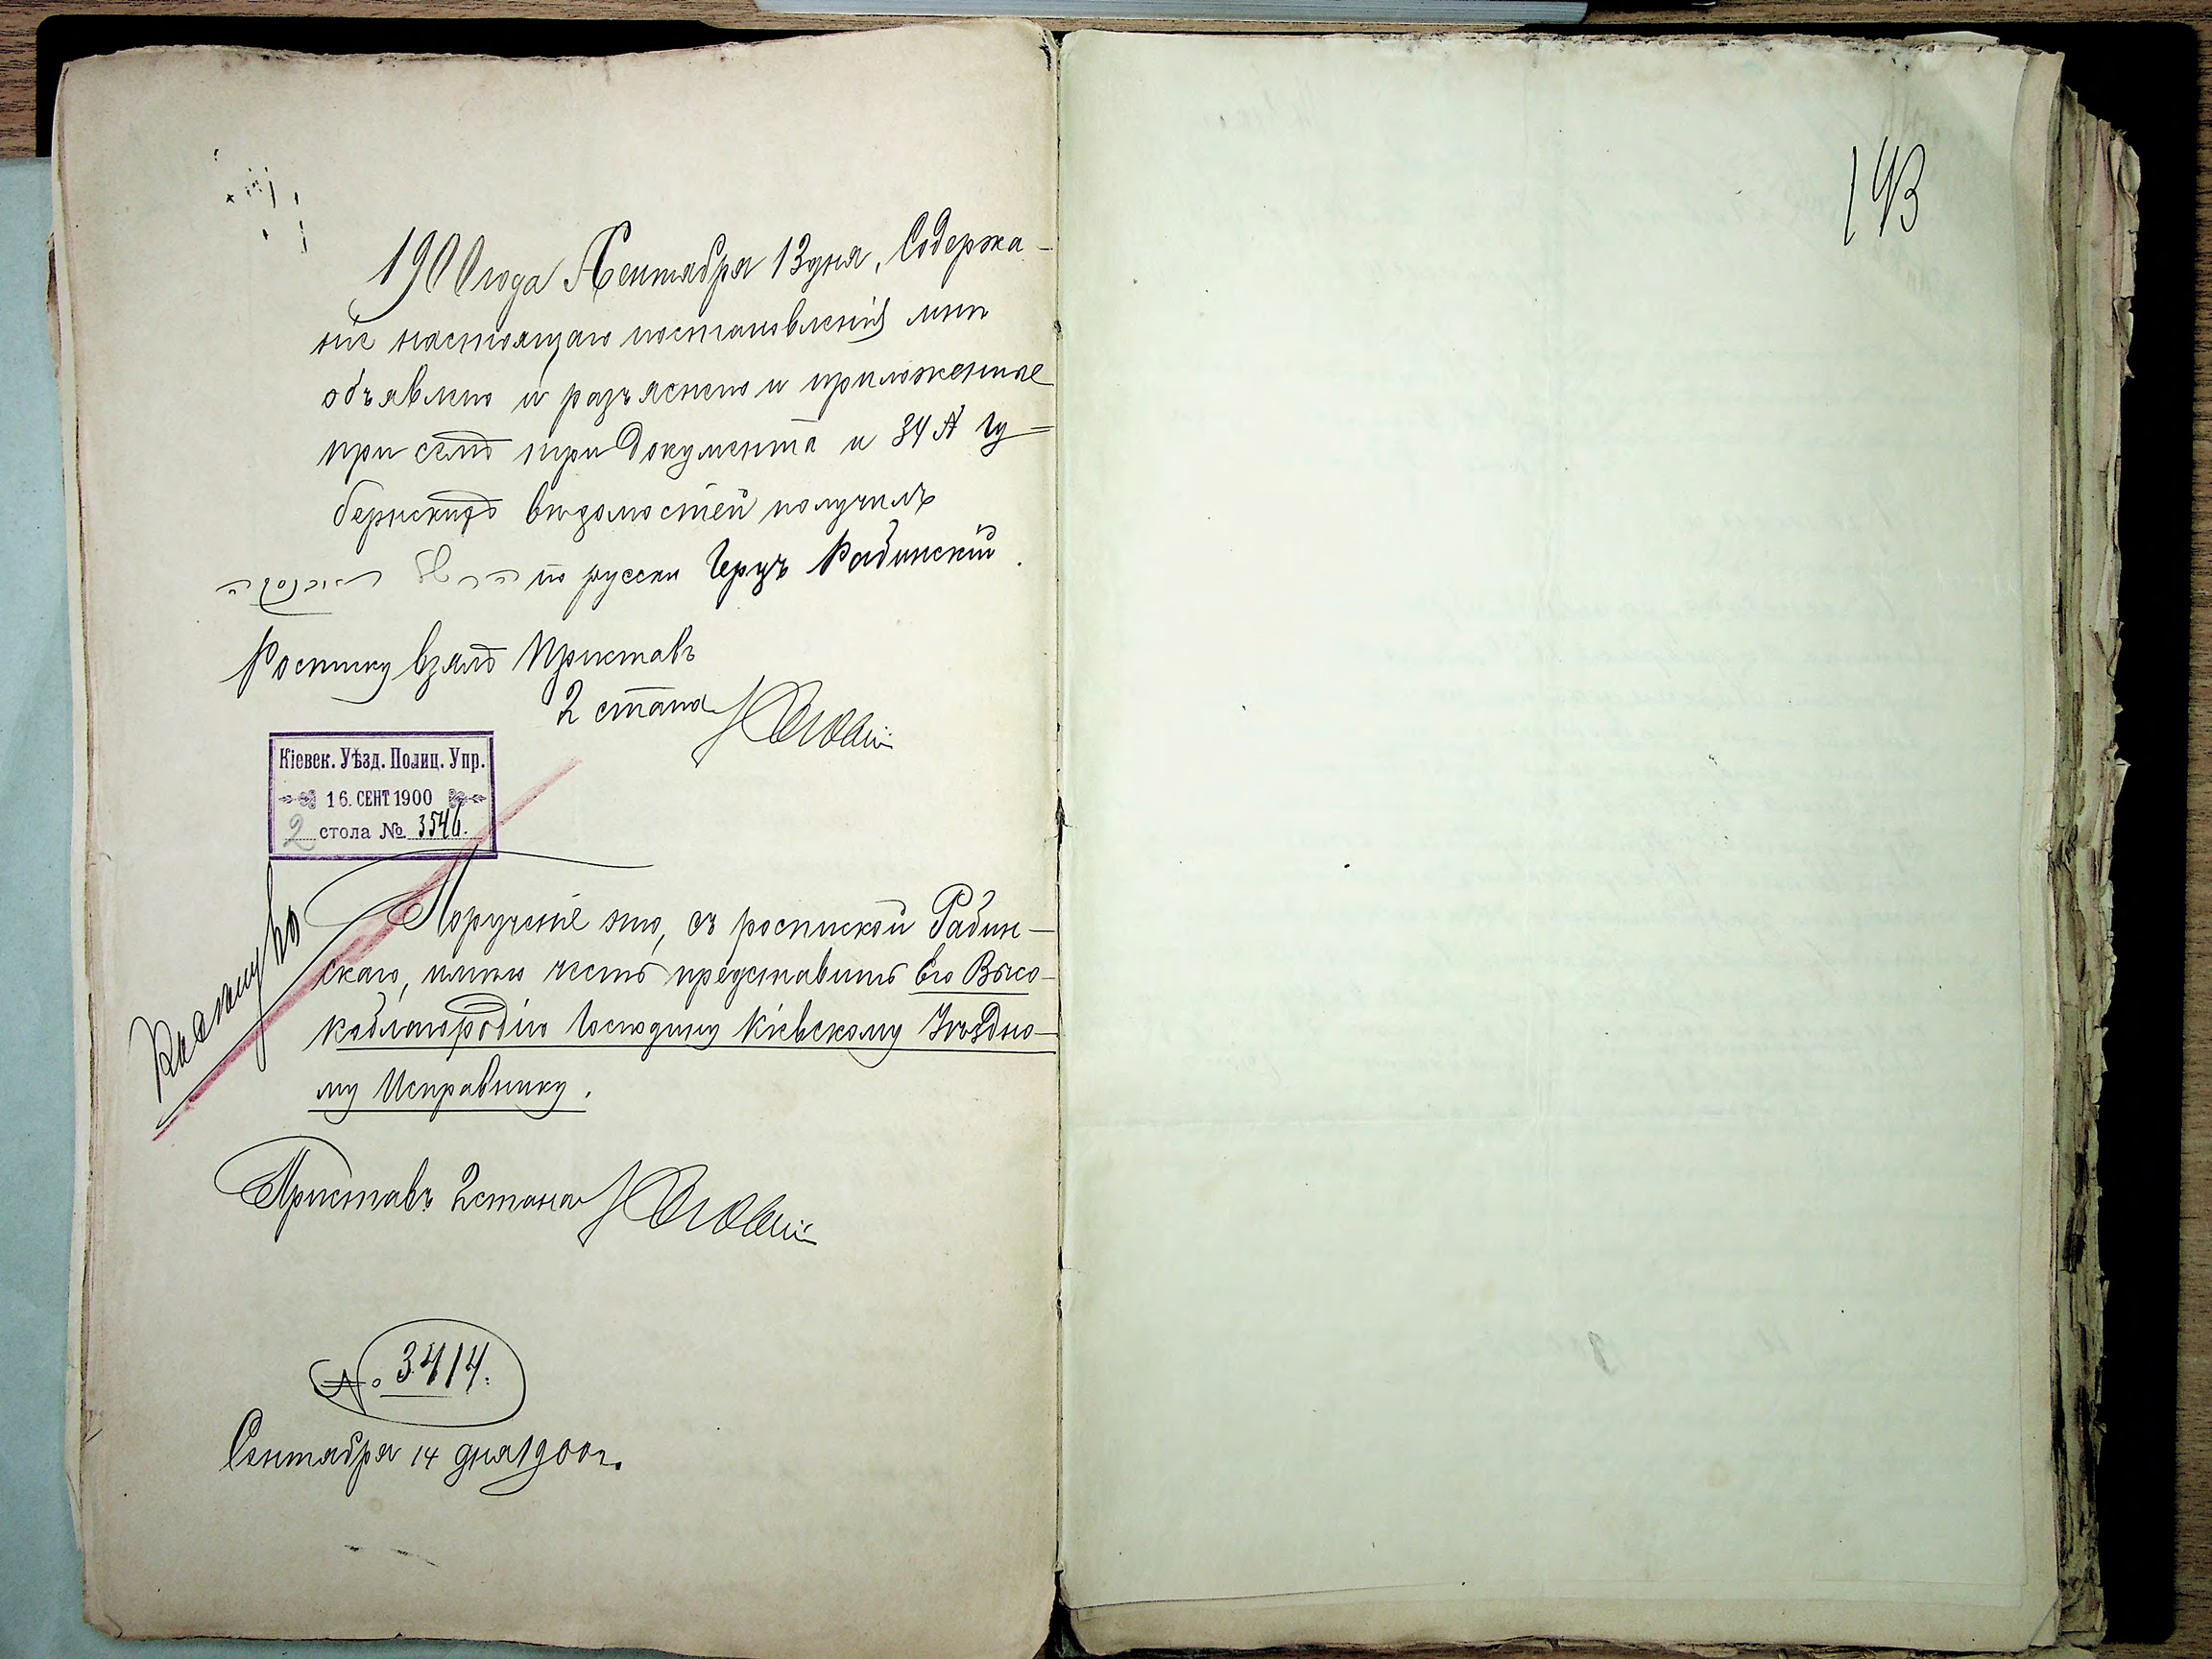 1900 года Сентября 13 дня, Содержа-
ніе настоящаго постановленія мнѣ
объявлено и разъяснено и приложенные
при семъ три документа и 34 № Гу-
бернскихъ вѣдомостей получилъ
по русски Герцъ Рабинскій.
Росписку взялъ Приставъ
2 стана
Кіевск. Уѣзд. Полиц. Упр.
16. СЕНТ 1900
2 стола № 3546.
Порученіе это, съ роспиской Рабин-
скаго, имѣю честь представить Его Высо-
коблагородію Господину Кіевскому Уѣздно-
му Исправнику.
Приставъ 2 стана
№ 3414.
Сентября 14 дня 1900 г.
143